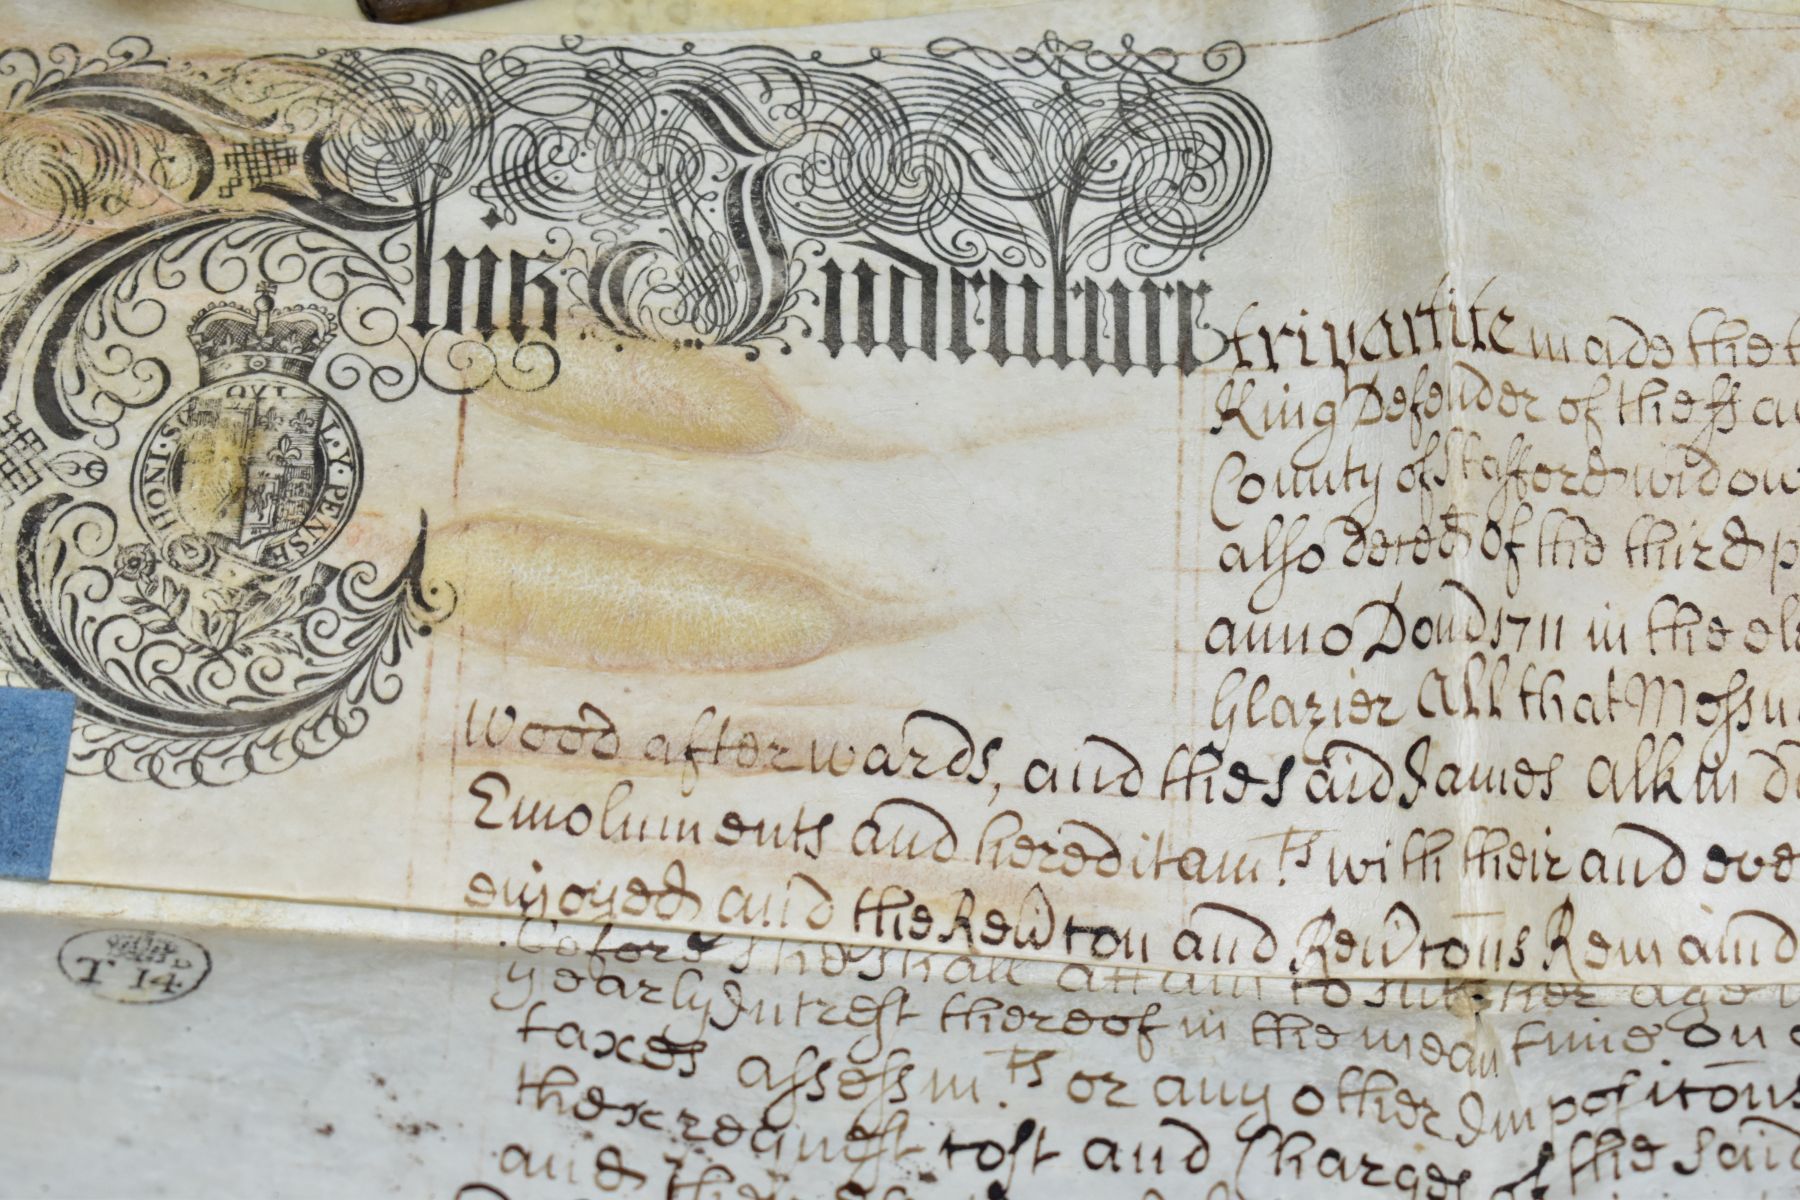 This Indenture tripartite made the t
King Defender of the ffa
County of Stafford widow
also deced of the third p
anno Dom 1711 in the
Glazier All that Messu
HONI · SO QVI L · Y · PENSE
Wood afterwards, and the said James Alkin
Emoluments and hereditam.ts with their and eve
enjoyed and the Reversion and Reversions Remaind
before she shall attain to her age
yearly Intrest thereof in the mean time
T 14
taxes assessm.ts or any other Imposicons
the request cost and Charges of the said
and the